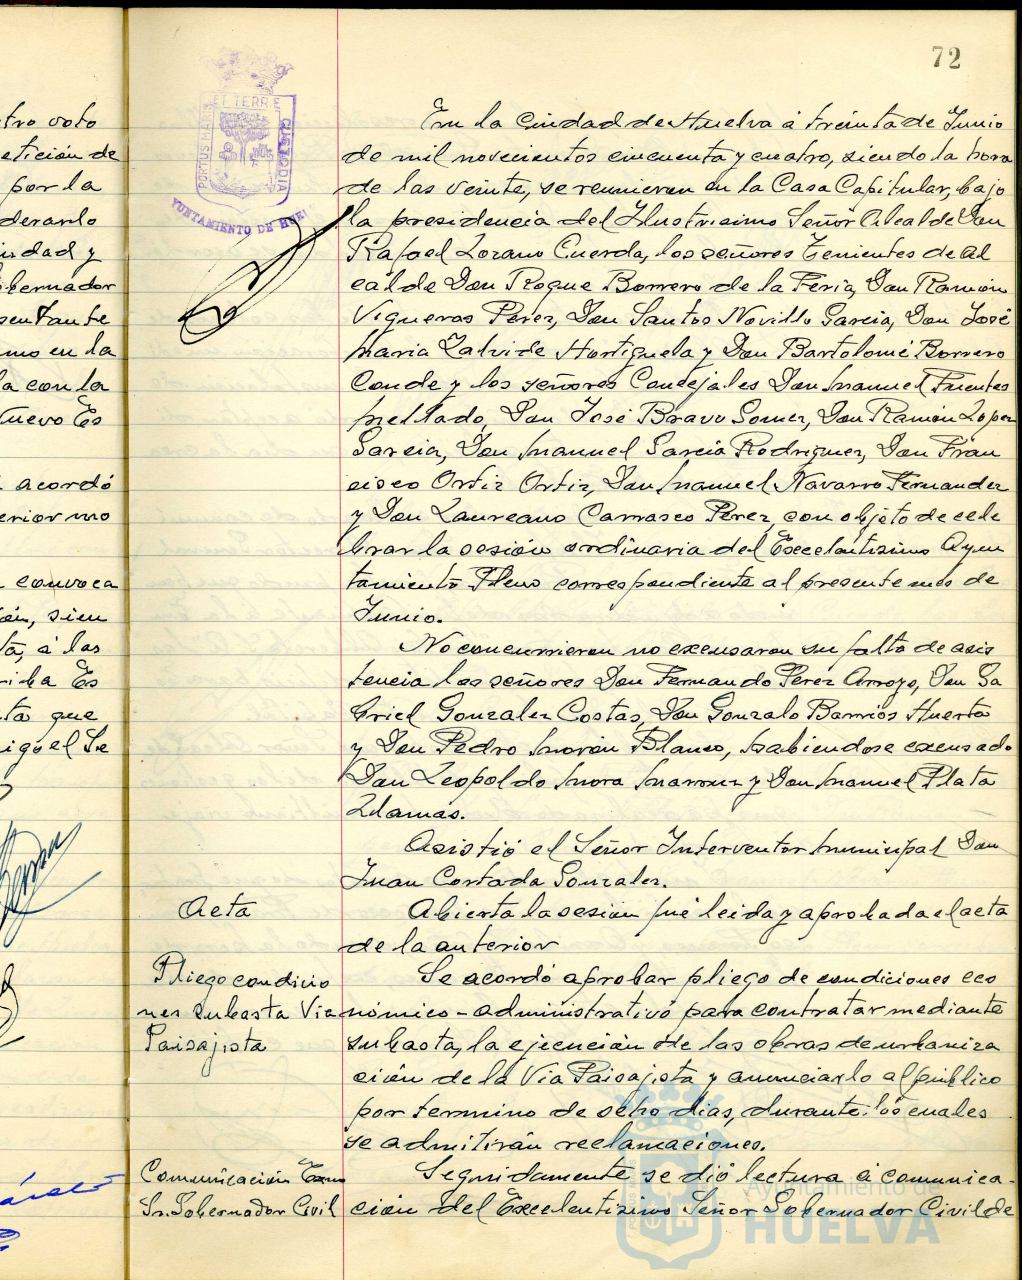 72
PORTUS MARIS ET TERRE CUSTODIA
AYUNTAMIENTO DE HUELVA
tro voto
etición de
por la
derarlo
idad y
obernador
sentante
mo en la
la con la
uevo Es
acordó
erior mo
convoca
ón, sien
ta, á las
riba Es
ta que
iguel Se
En la Ciudad de Huelva á treinta de Junio
de mil novecientos cincuenta y cuatro, siendo la hora
de las veinte, se reunieron en la Casa Capitular, bajo
la presidencia del Ilustrisimo Señor Alcalde Don
Rafael Lozano Cuerda, los señores Tenientes de Al
calde Don Roque Borrero de la Feria, Don Ramón
Vigueras Perez, Don Santos Novillo Garcia, Don José
Maria Zalvide Hortiguela y Don Bartolomé Borrero
Conde y los señores Concejales Don Manuel Fuentes
Mellado, Don José Bravo Gomez, Don Ramón Lopez
Garcia, Don Manuel Garcia Rodriguez, Don Fran
cisco Ortiz Ortiz, Don Manuel Navarro Fernandez
y Don Laureano Carrasco Perez, con objeto de cele
brar la sesión ordinaria del Excelentisimo Ayun
tamiento Pleno correspondiente al presente mes de
Junio.
No concurrieron no excusaron su falta de asis
tencia los señores Don Fernando Perez Arroyo, Don Ga
briel Gonzalez Costas, Don Gonzalo Barrios Huerta
y Don Pedro Morón Blanco, habiendose excusado
Don Leopoldo Mora Marrouz y Don Manuel Plata
Llamas.
Asistió el Señor Interventor Municipal Don
Juan Cortada Gonzalez.
Acta
Abierta la sesión fué leida y aprobada el acta
de la anterior
Pliego condicio
nes subasta Via
Paisajista
Se acordó aprobar pliego de condiciones eco
nómico-administrativo para contratar mediante
subasta, la ejecución de las obras de urbaniza
ción de la Via Paisajista y anunciarlo al público
por termino de ocho dias, durante los cuales
se admitirán reclamaciones.
Comunicación Exmo
Sr. Gobernador Civil
Seguidamente se dió lectura á comunica-
ción del Excelentisimo Señor Gobernador Civil de
Ayuntamiento de
HUELVA